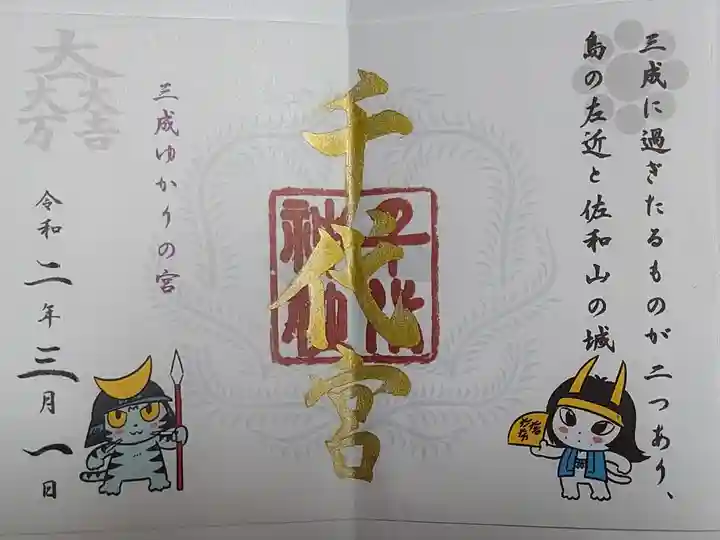 三成に過ぎたるものが二つあり、
島の左近と佐和山の城
千代宮
三成ゆかりの宮
大一大万大吉
令和二年三月一日